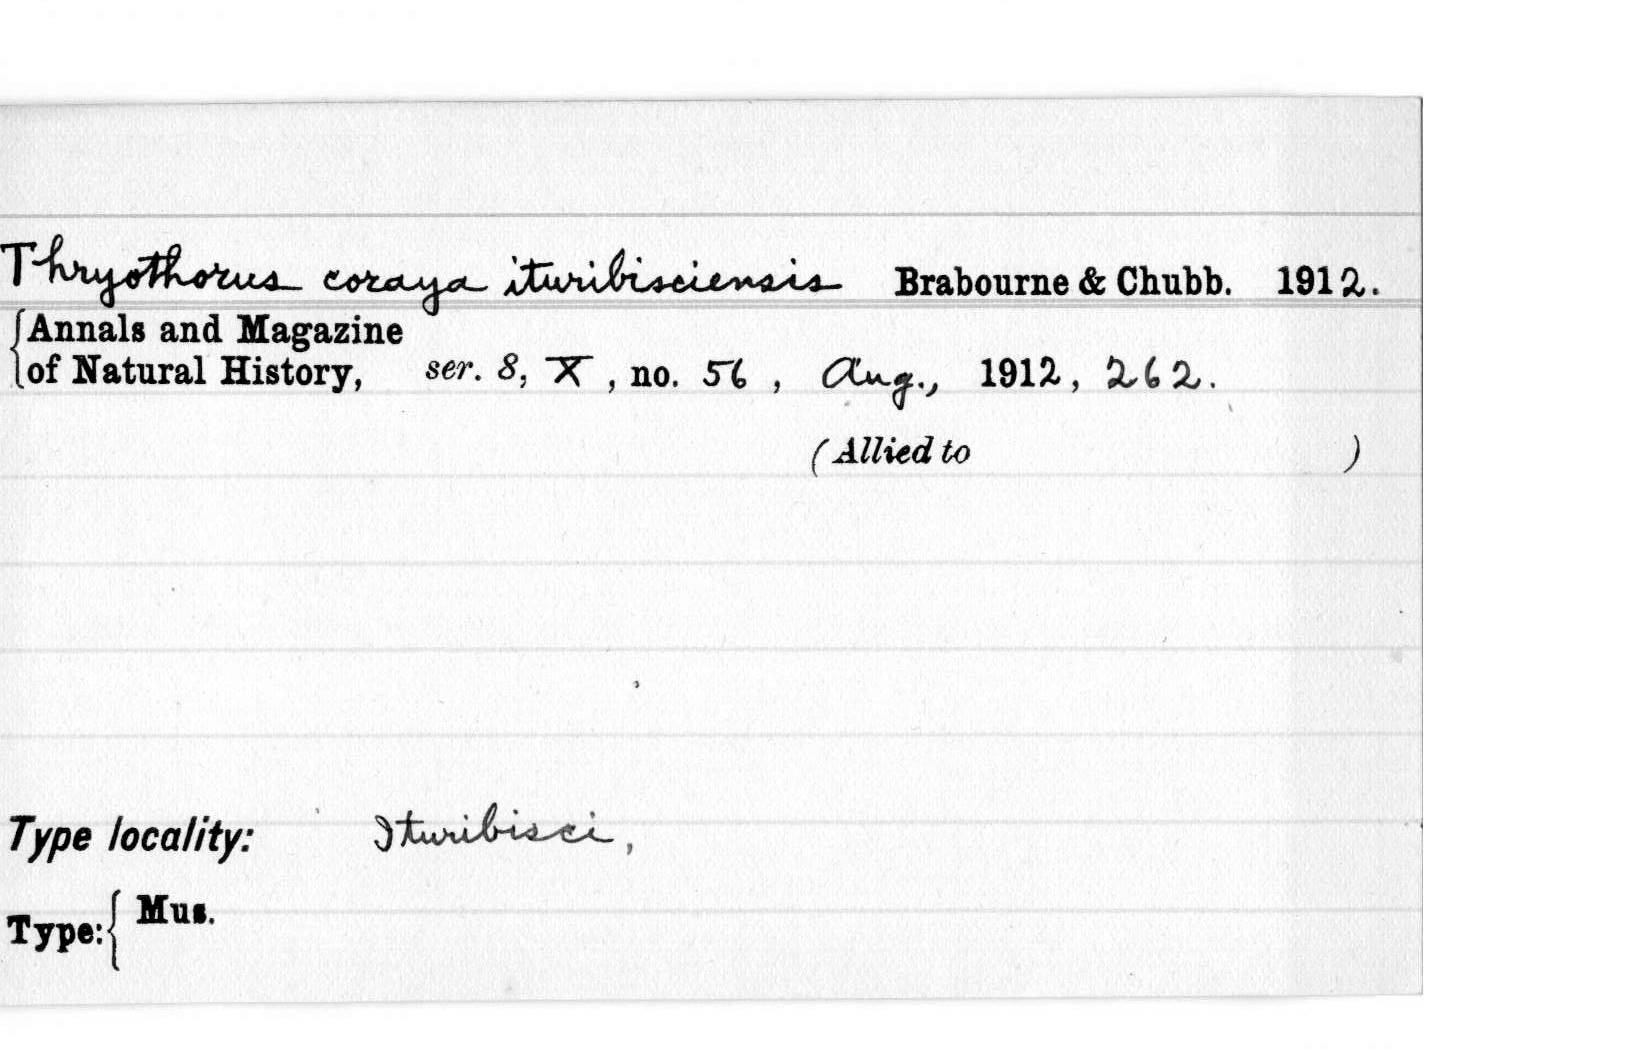 Thryothorus coraya ituribisciensis Brabourne & Chubb. 1912.
Annals and Magazine
of Natural History, ser. 8, X, no. 56, Aug., 1912, 262.
(Allied to )
Type locality: Ituribisci,
Type: Mus.